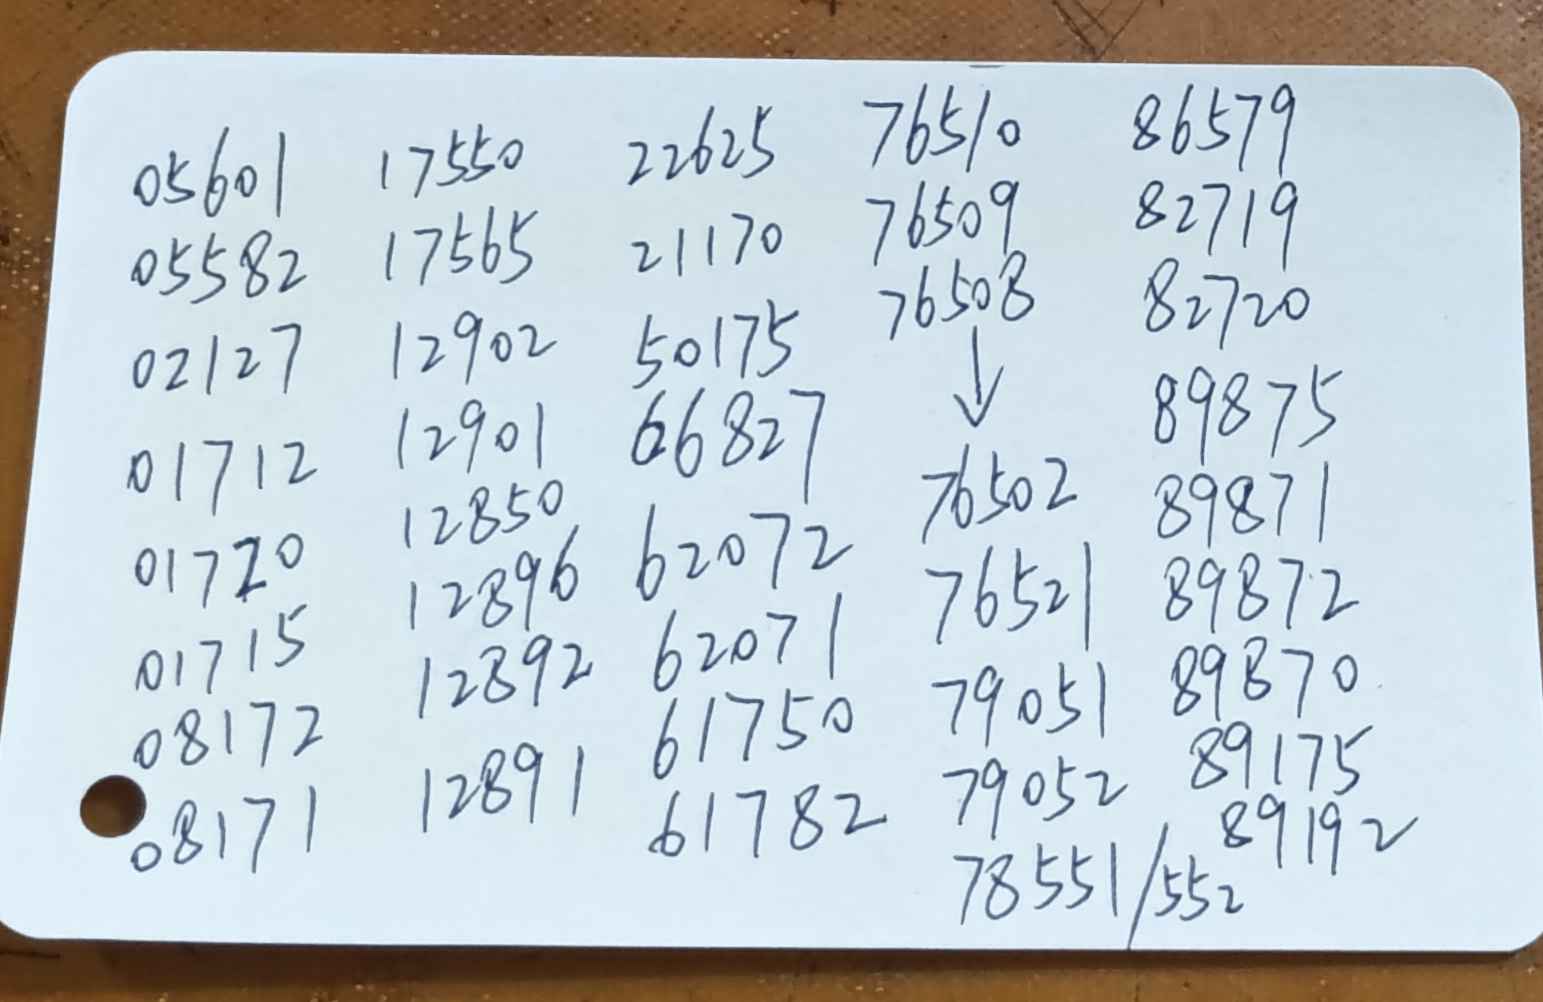 05601
05582
02127
01712
01720
01715
08172
08171
17550
17565
12902
12901
12850
12896
12892
12891
22625
21170
50175
66827
62072
62071
61750
61782
76510
76509
76508
↓
76502
76521
79051
79052
78551/552
86579
82719
82720
89875
89871
89872
89870
89175
89192